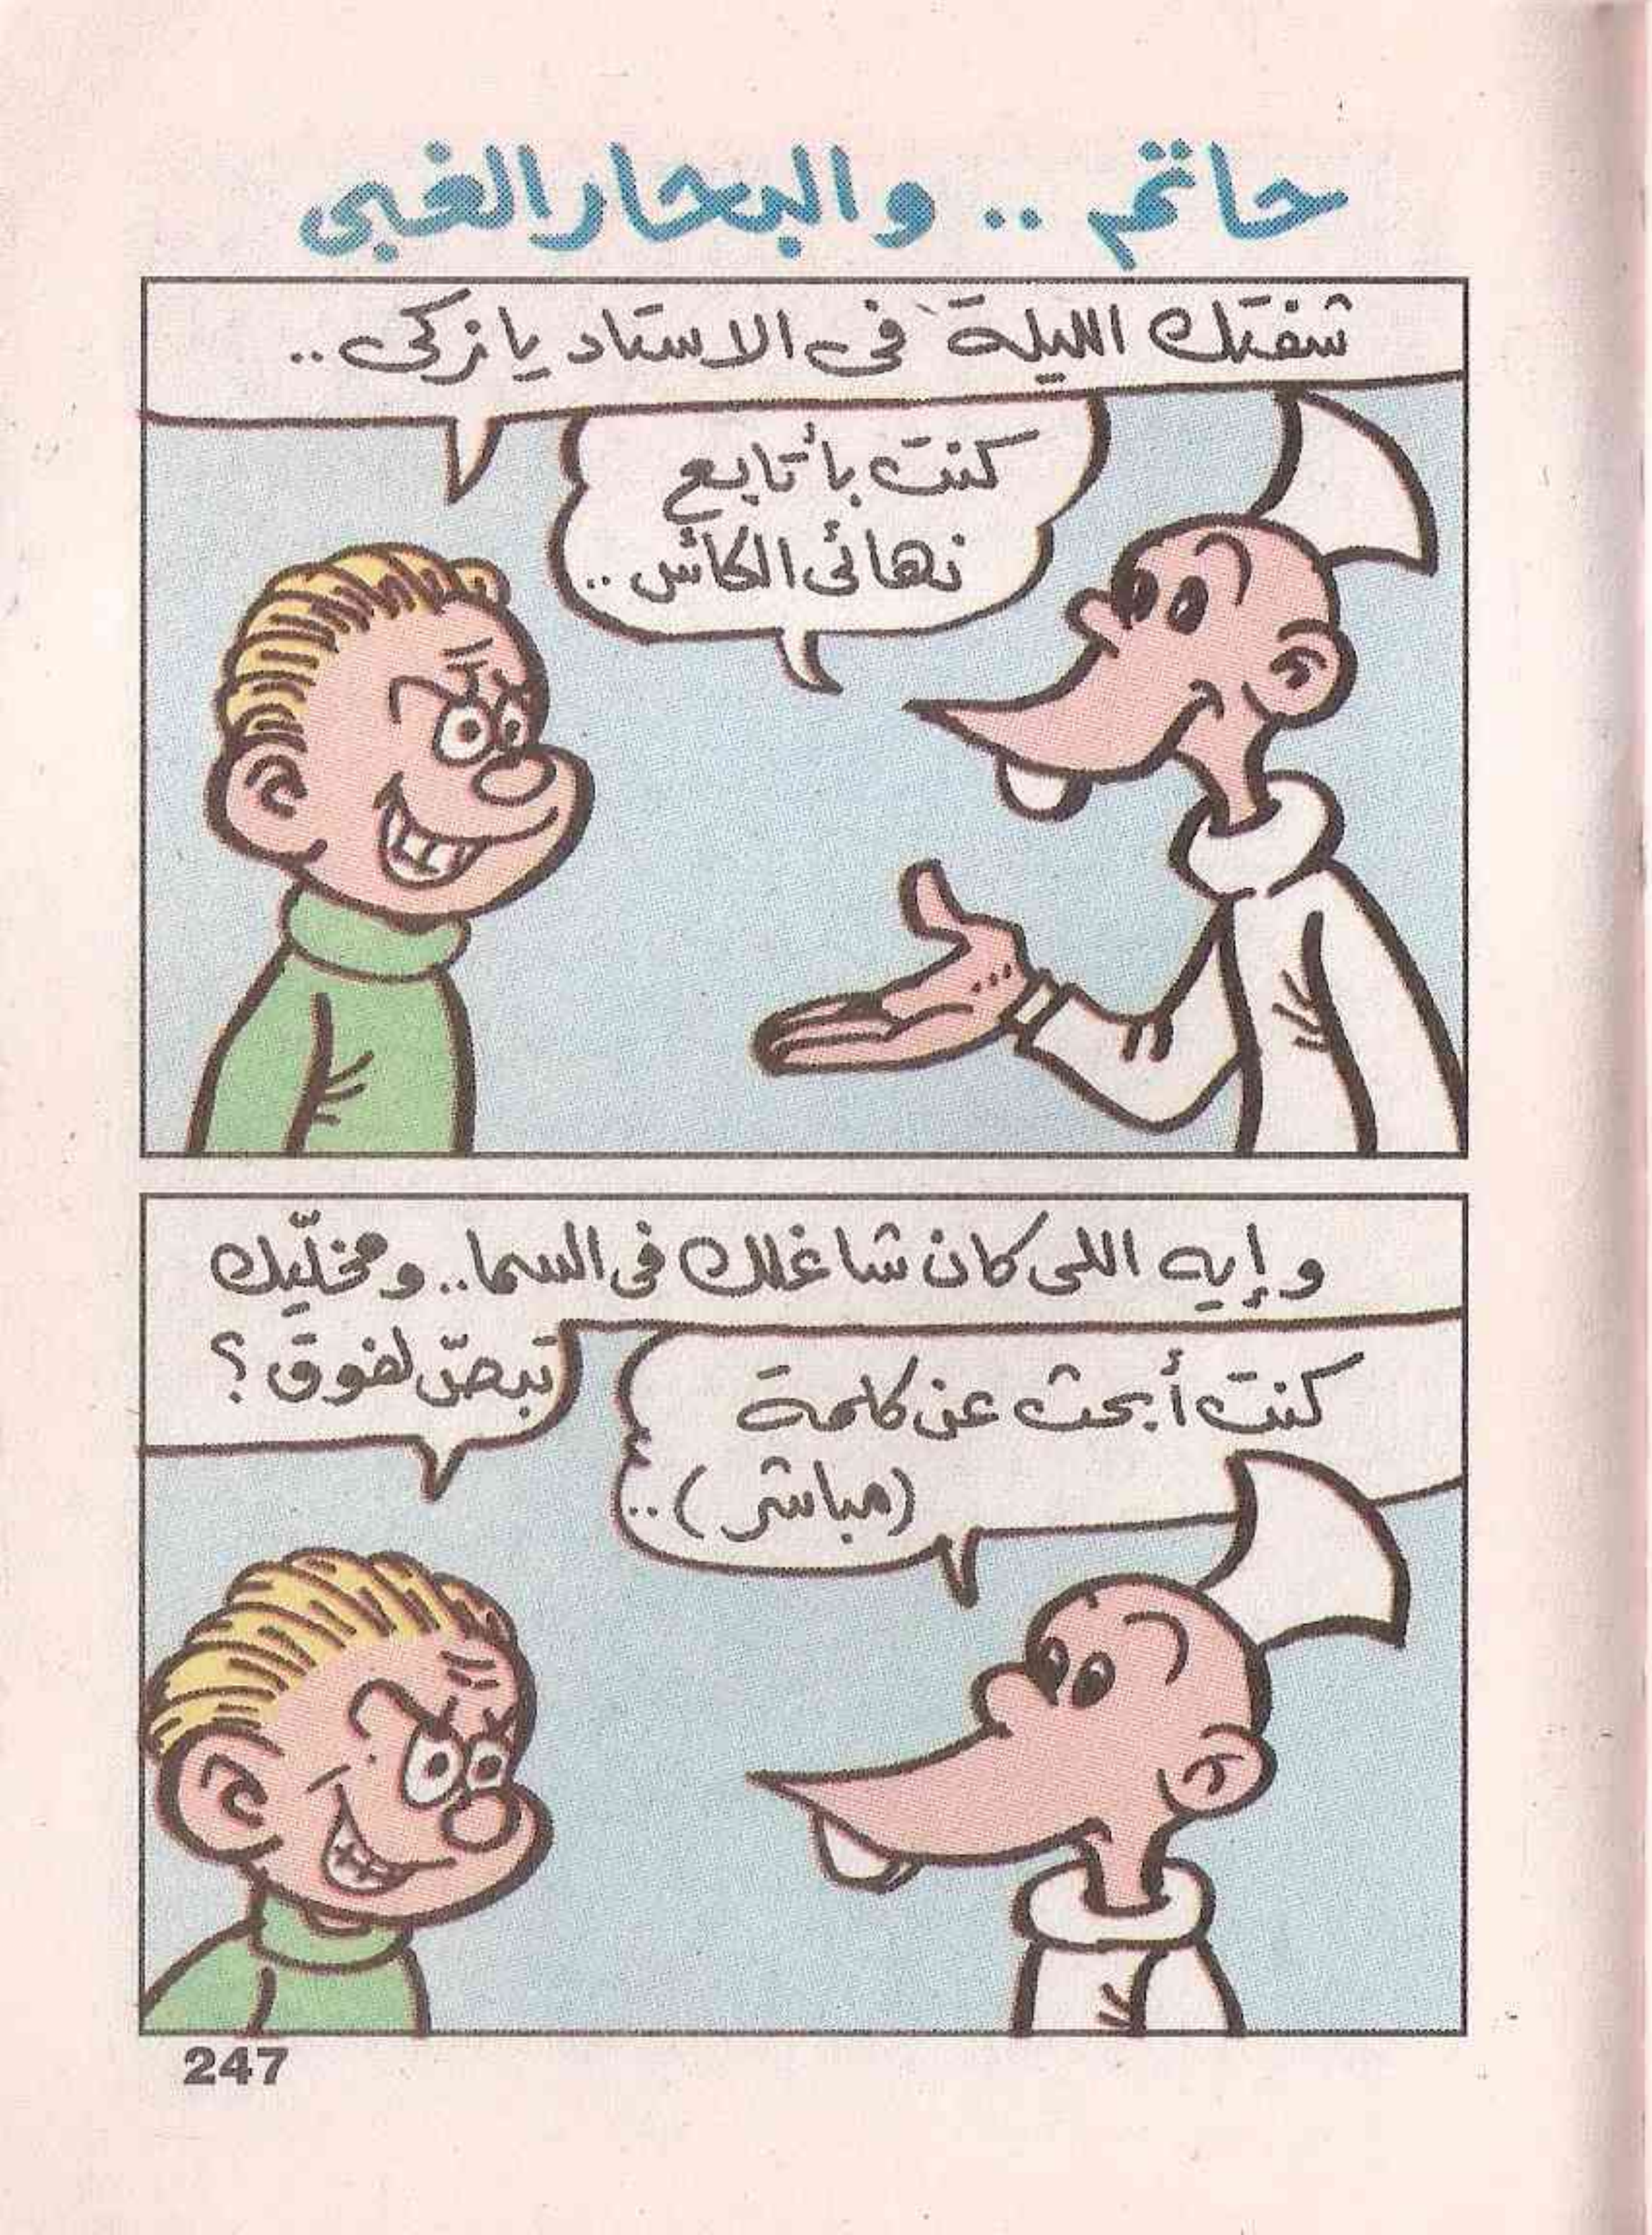 حاتم .. والبحار الغبى
شفتك الليلة فى الاستاد يا زكى ..
كنت بأتابع
نهائى الكأس ..
وإيه اللى كان شاغلك فى السما .. ومخلّيك
تبصّ لفوق ؟
كنت أبحث عن كلمة
(مباشر) ..
247